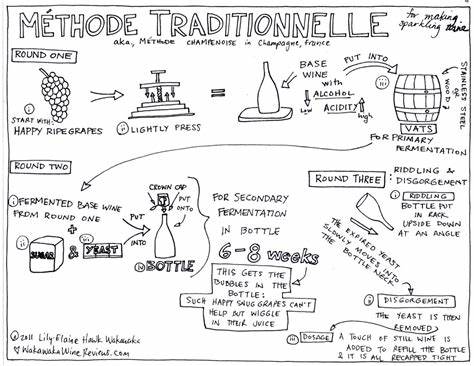 MÉTHODE TRADITIONNELLE
for making
sparkling wine
aka, MÉTHODE CHAMPENOISE in CHAMPAGNE, FRANCE
ROUND ONE
i
START WITH:
HAPPY RIPE GRAPES
ii LIGHTLY PRESS
=
BASE
WINE
with
low ALCOHOL
ACIDITY high
PUT INTO
iii
STAINLESS STEEL
OR
WOOD
VATS
FOR PRIMARY
FERMENTATION
ROUND TWO
i FERMENTED BASE WINE
FROM ROUND ONE
+
ii SUGAR
& iii YEAST
PUT
INTO
CROWN CAP
PUT
ONTO
iv BOTTLE
FOR SECONDARY
FERMENTATION
IN BOTTLE
6-8 weeks
THIS GETS THE
BUBBLES IN THE
BOTTLE:
SUCH HAPPY SNUG GRAPES CAN'T
HELP BUT WIGGLE
IN THEIR JUICE
ROUND THREE:
RIDDLING &
DISGORGEMENT
i RIDDLING
BOTTLE PUT
IN RACK
UPSIDE DOWN
AT AN ANGLE
THE EXPIRED YEAST
SLOWLY MOVES INTO
THE BOTTLE NECK
ii DISGORGEMENT
THE YEAST IS THEN
REMOVED
iii DOSAGE
A TOUCH OF STILL WINE IS
ADDED TO REFILL THE BOTTLE
& IT IS ALL RECAPPED TIGHT
© 2011 Lily-Elaine Hawk Wakawaka
WakawakaWineReviews.com